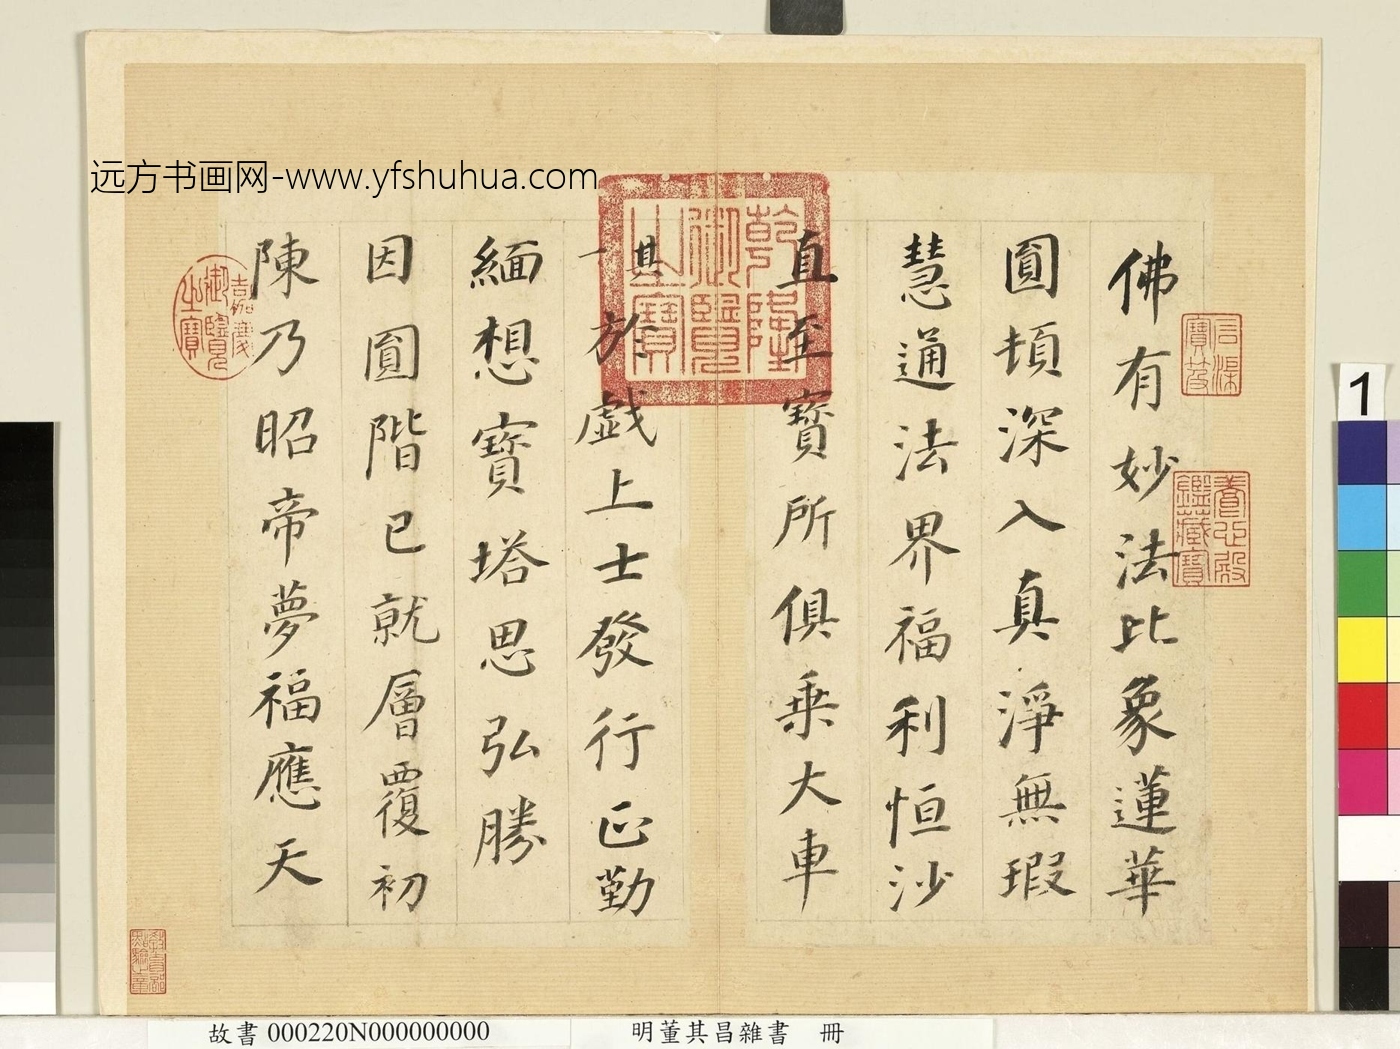 远方书画网-www.yfshuhua.com
佛有妙法比象蓮華
圓頓深入真淨無瑕
慧通法界福利恒沙
直至寶所俱乗大車
其一
於戲上士發行正勤
緬想寶塔思弘勝
因圓階已就層覆初
陳乃昭帝夢福應天
乾隆御覽之寶
嘉慶御覽之寶
養心殿鑑藏寶
石渠寶笈
1
故書 000220N000000000
明董其昌雜書 冊